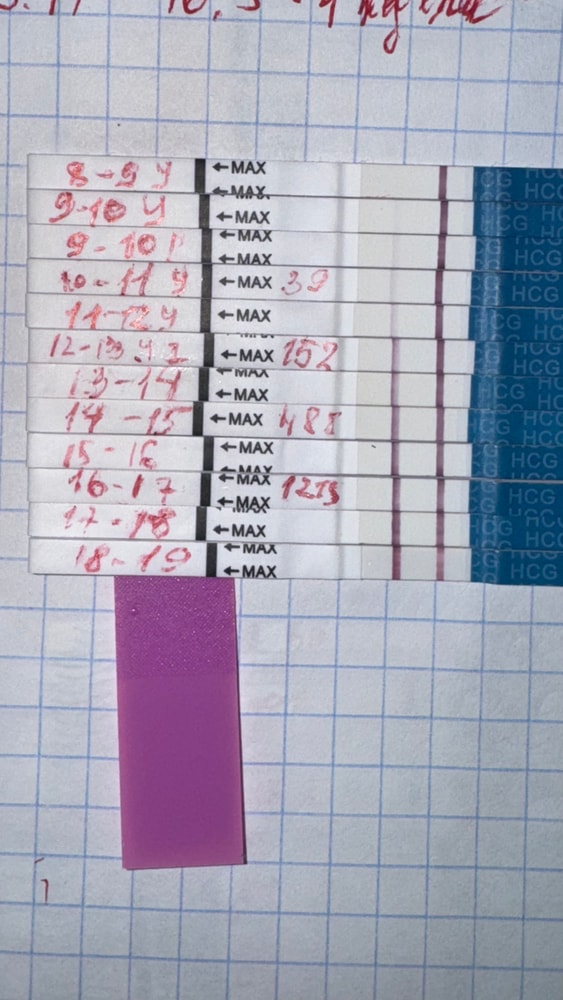 8-9 У ←MAX HCG
←MAX
9-10 У ←MAX HCG
←MAX
9-10 ←MAX HCG
10-11 У ←MAX 39 HCG
11-12 У ←MAX HCG
12-13 ←MAX 152 HCG
←MAX
13-14 ←MAX HCG
14-15 ←MAX 488 HCG
15-16 ←MAX HCG
←MAX
16-17 ←MAX HCG
←MAX
17-18 ←MAX HCG
←MAX
18-19 ←MAX HCG